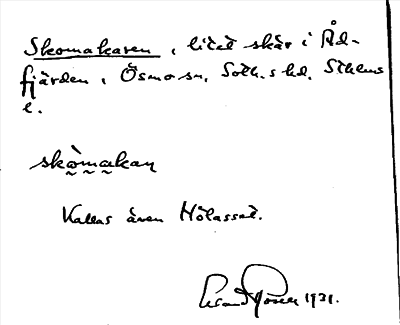 Skomakaren, litet skär i Åd-
fjärden, Ösmo sn, Soth. s hd. Sthlms
l.
skòmakan
Kallas även Mölasset.
1931.